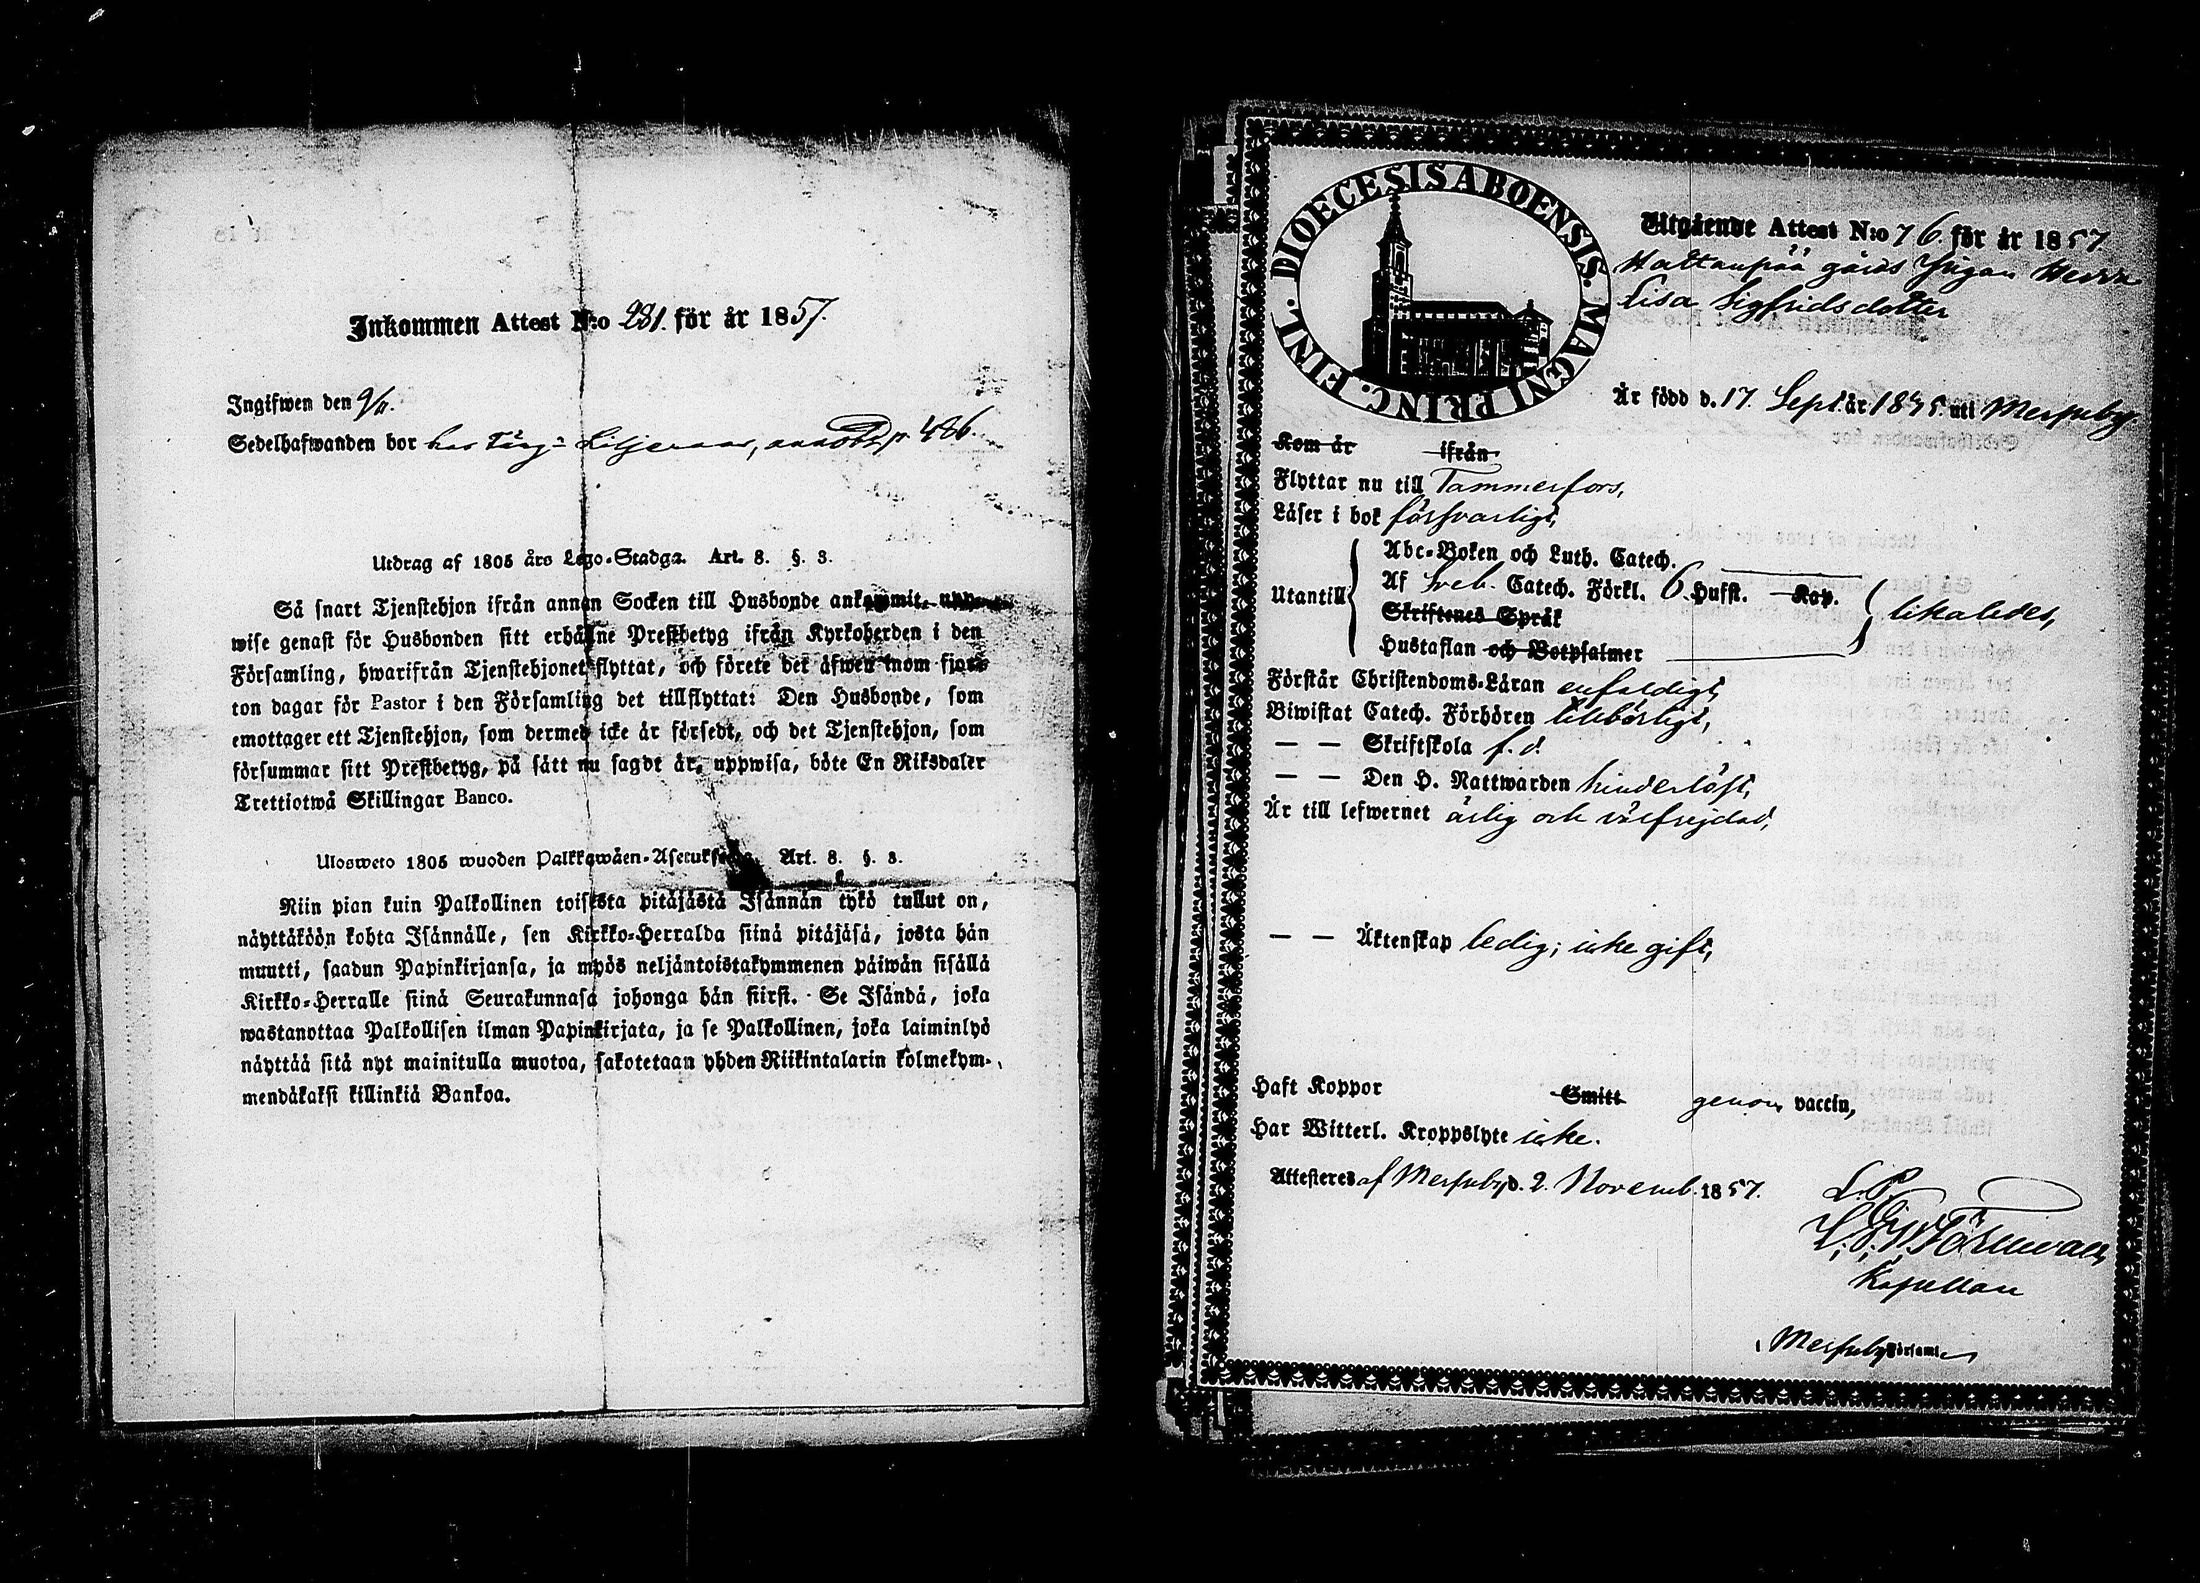 Inkommen Attest N:o 281. för år 1857.
Ingifwen den 9/11.
Sedelhafwanden bor hos Färg: Liljeroos, p. 486.
Utdrag af 1805 års Lego-Stadga. Art. 8. §. 3.
Så snart Tjenstehjon ifrån annan Socken till Husbonde ankommit, upp-
wise genast för Husbonden sitt erhållne Prestbetyg ifrån Kyrkoherden i den
Församling, hwarifrån Tjenstehjonet flyttat, och förete det äfwen inom fjor-
ton dagar för Pastor i den Församling det tillflyttat: Den Husbonde, som
emottager ett Tjenstehjon, som dermed icke är försedt, och det Tjenstehjon, som
försummar sitt Prestbetyg, på sätt nu sagdt är, uppwisa, böte En Riksdaler
Trettiotwå Skillingar Banco.
Ulosweto 1805 wuoden Palkkawäen-Asetuksesta. Art. 8. §. 3.
Niin pian kuin Palkollinen toisesta pitäjästä Isännän tykö tullut on,
näyttäköön kohta Isännälle, sen Kirkko-Herralda siinä pitäjäsä, josta hän
muutti, saadun Papinkirjansa, ja myös neljäntoistakymmenen päiwän sisällä
Kirkko-Herralle siinä Seurakunnasa johonga hän siirst. Se Isändä, joka
wastanottaa Palkollisen ilman Papinkirjata, ja se Palkollinen, joka laiminlyö
näyttää sitä nyt mainitulla muotoa, sakotetaan yhden Riikintalarin kolmekym-
mendäkaksi killinkiä Bankoa.
DIOECESIS ABOENSIS. MAGNI PRINC. FINL.
Utgående Attest N:o 76. för år 1857.
Hattanpää gårds Pigan
Lisa Sigfridsdotter
Är född d. 17. Sept. år 1835. uti Messuby.
Kom år ifrån
Flyttar nu till Tammerfors,
Läser i bok försvarligt,
Utantill
Abc-Boken och Luth. Catech.
Af Sveb. Catech. Förkl. 6. Hufst. Kap.
Skriftenes Språk
Hustaflan och Botpsalmer
likaledes,
Förstår Christendoms-Läran enfaldigt,
Biwistat Catech. Förhören tillbörligt,
— — Skriftskola f. d.
— — Den H. Nattwarden hinderlöst,
Är till lefwernet ärlig och välfrejdad,
— — Äktenskap ledig; icke gift,
Haft Koppor Smitt genom vaccin,
Har Witterl. Kroppslyte icke.
Attesteres af Messuby d. 2. Novemb. 1857.
L. P.
Törnwall,
Kapellan
Messuby Församl